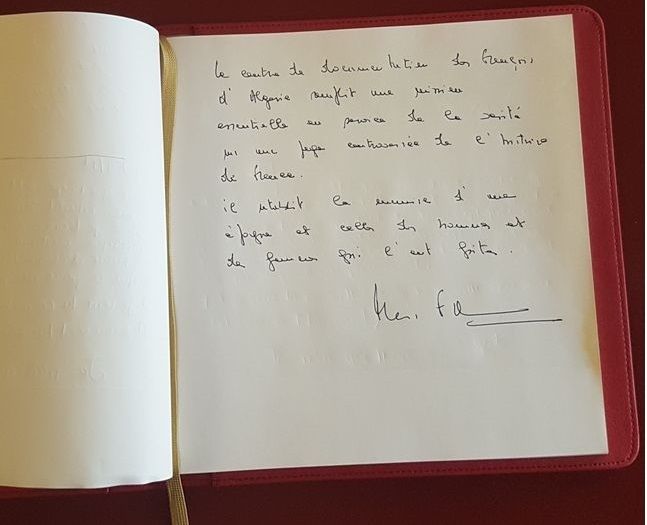 Le centre de documentation des français
d'Algérie remplit une mission
essentielle au service de la vérité
sur une page controversée de l'histoire
de France.
il rétablit la mémoire d'une
époque et celle des hommes et
des femmes qui l'ont faite.